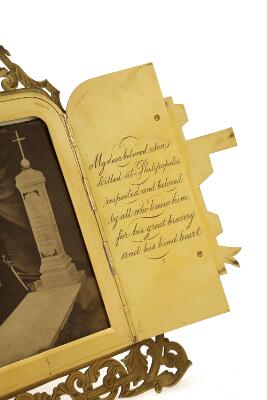 My dear beloved son
killed at Philipopolis,
respected and beloved
by all who knew him,
for his great bravery
and his kind heart.